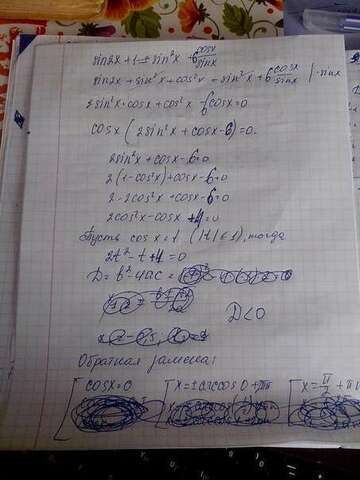 sin2x + 1 = sin²x + 6 cosx/sinx
sin2x + sin²x + cos²x = sin²x + 6 cosx/sinx | · sinx
2sin²x·cosx + cos²x - 6cosx = 0
cosx (2sin²x + cosx - 6) = 0.
2sin²x + cosx - 6 = 0
2(1 - cos²x) + cosx - 6 = 0
2 - 2cos²x + cosx - 6 = 0
2cos²x - cosx + 4 = 0
Пусть cosx = t (|t| ≤ 1), тогда
2t² - t + 4 = 0
D = b² - 4ac =
D < 0
Обратная замена:
[ cosx = 0 [ x = ± arccos 0 + πn [ x = π/2 + πn